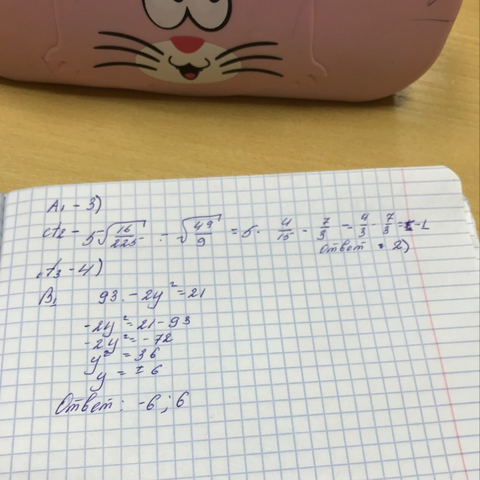 A1 - 3)
A2 - 5√16/225 - √49/9 = 5 · 4/15 - 7/3 = 4/3 - 7/3 = -1
Ответ = 2)
A3 - 4)
B1 93 - 2y² = 21
-2y² = 21 - 93
-2y² = -72
y² = 36
y = ±6
Ответ: -6; 6